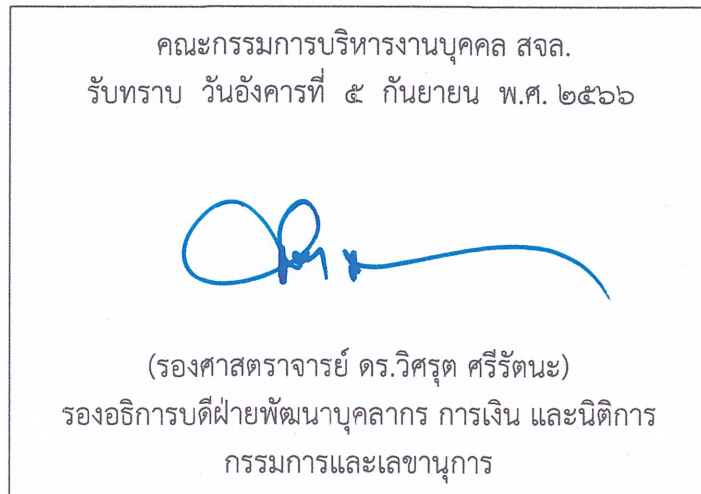 คณะกรรมการบริหารงานบุคคล สจล.
รับทราบ วันอังคารที่ ๕ กันยายน พ.ศ. ๒๕๖๖
(รองศาสตราจารย์ ดร.วิศรุต ศรีรัตนะ)
รองอธิการบดีฝ่ายพัฒนาบุคลากร การเงิน และนิติการ
กรรมการและเลขานุการ